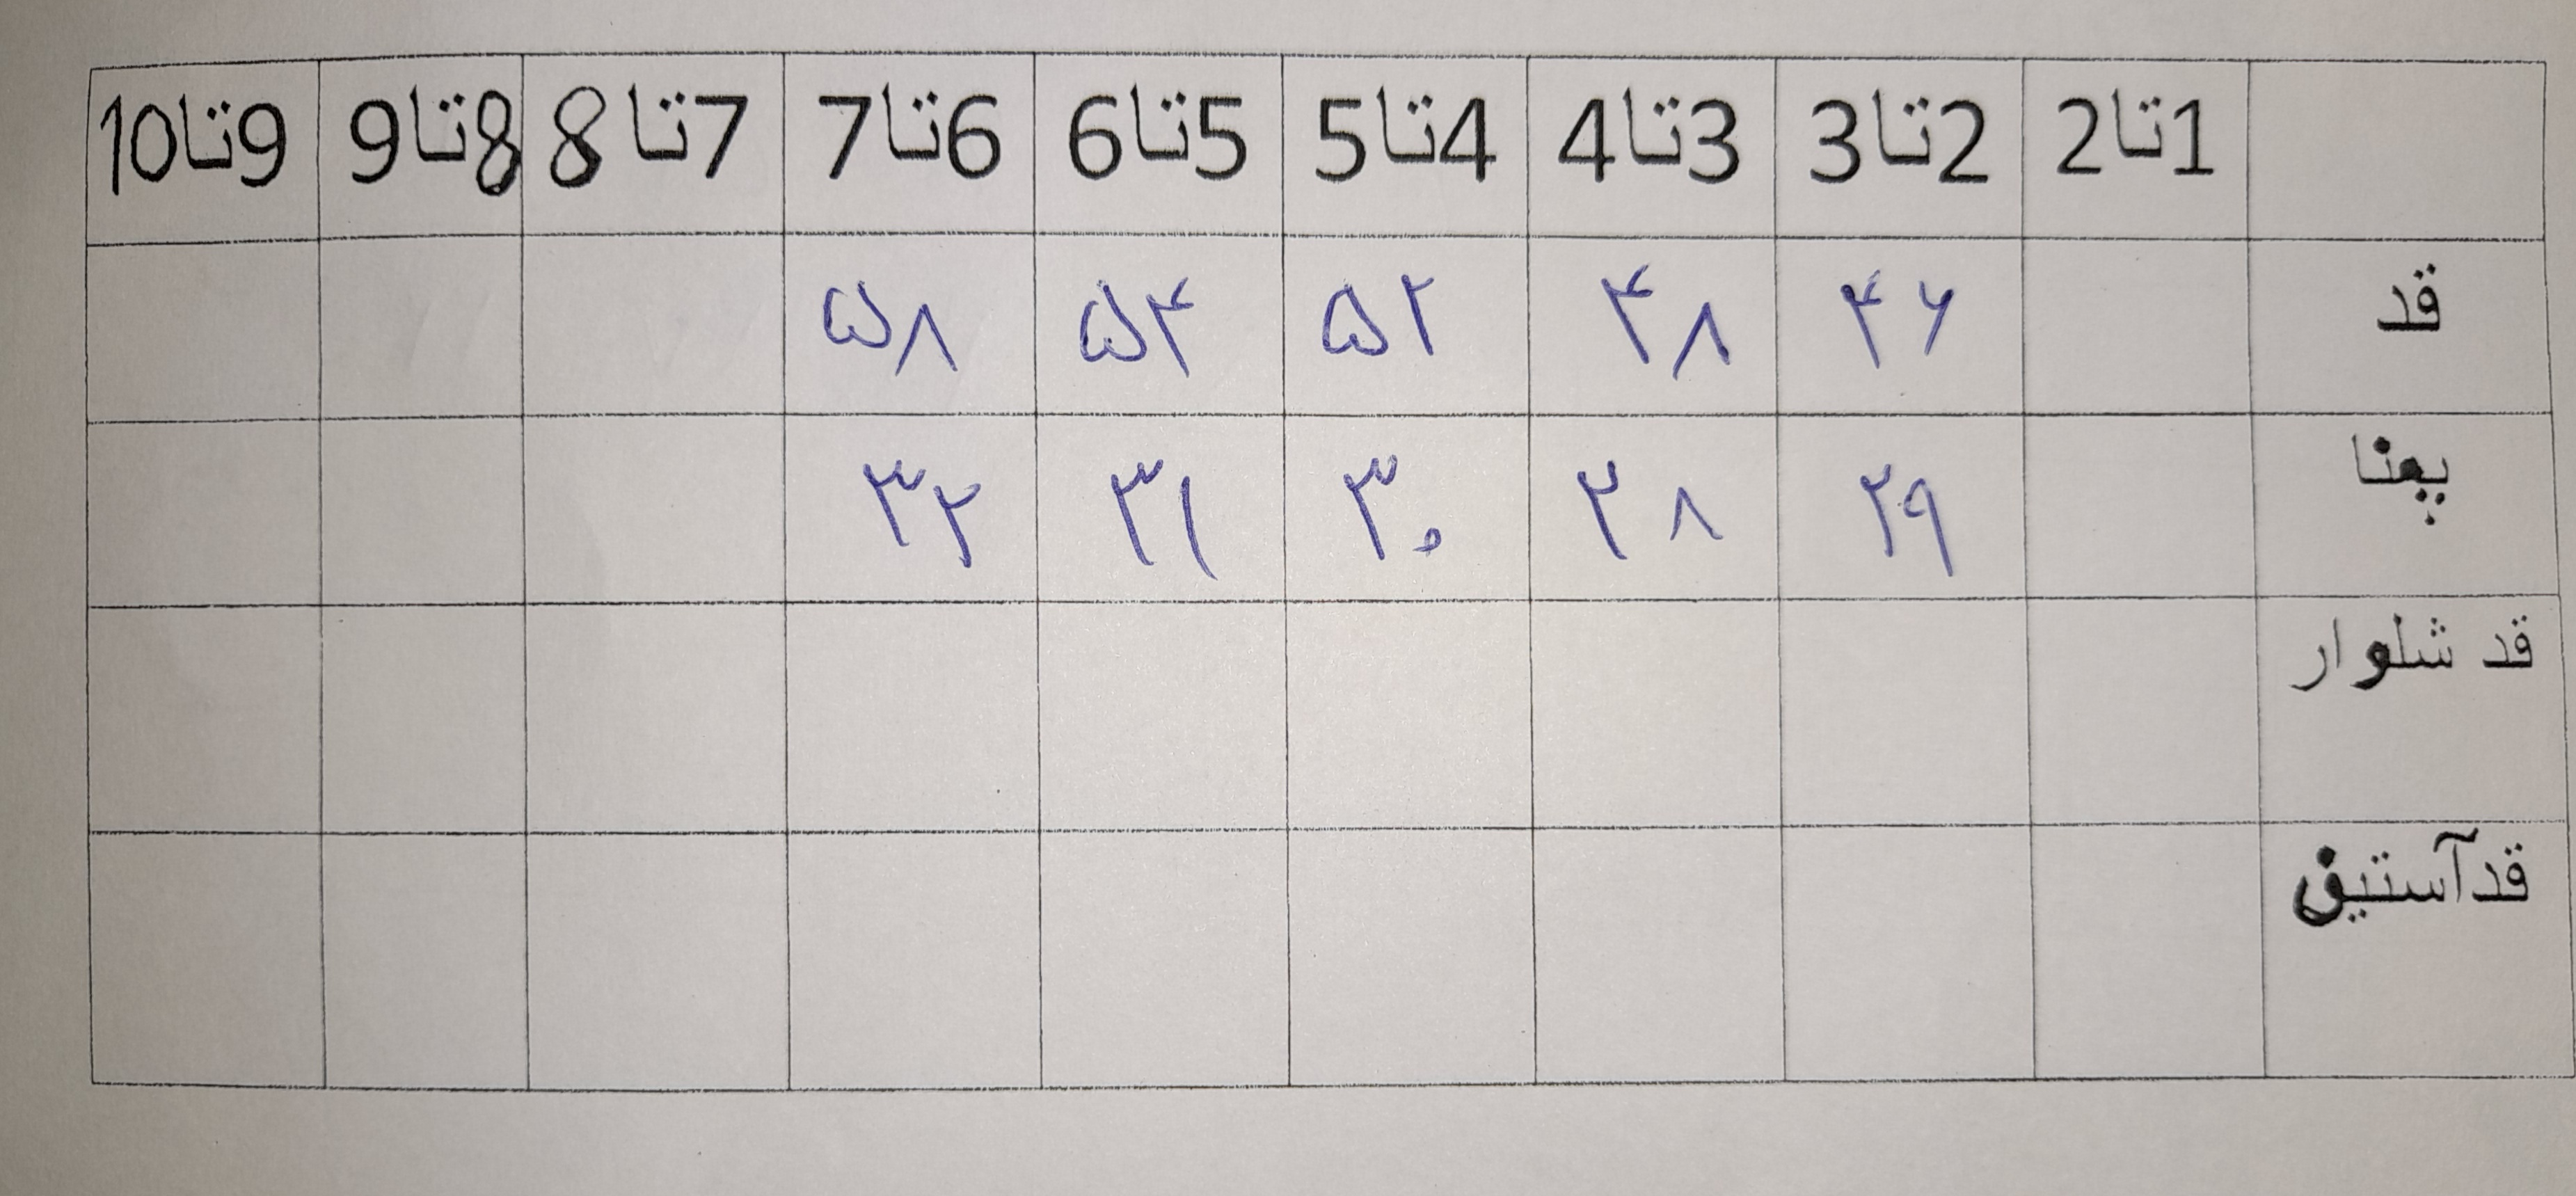 1تا2 2تا3 3تا4 4تا5 5تا6 6تا7 7تا8 8تا9 9تا10
قد ۴۶ ۴۸ ۵۲ ۵۴ ۵۸
پهنا ۲۹ ۲۸ ۳۰ ۳۱ ۳۲
قد شلوار
قدآستین